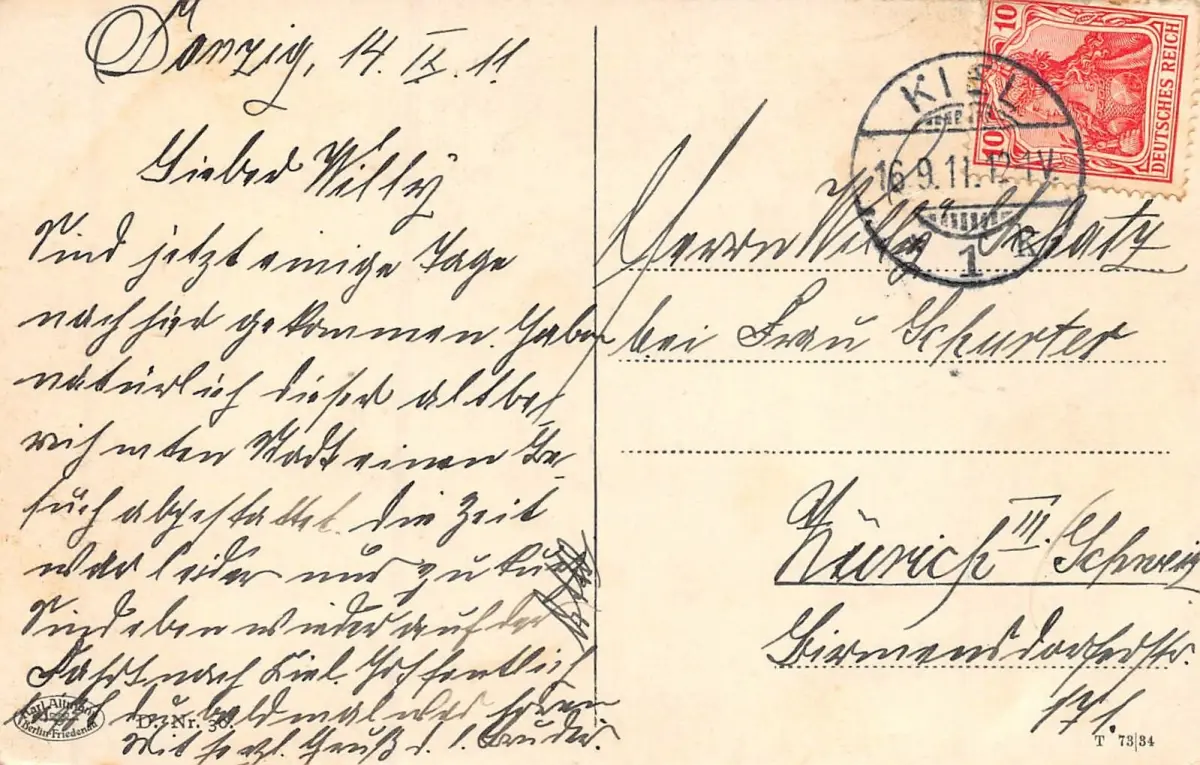 Danzig, 14. IX. 11
Lieber Willy
Sind jetzt einige Tage
nach hier gekommen. Haben
natürlich dieser altbe-
rühmten Stadt einen Be-
such abgestattet. Die Zeit
war leider nur zu kurz
Sind eben wieder auf der
Fahrt nach Kiel. Hoffentlich
du bald mal was hören
Mit herzl. Gruß d. l. Bruder.
Karl Altmann
Berlin-Friedenau
D. Nr. 36.
10
10
DEUTSCHES REICH
KIEL
16.9.11.12-1V.
* 1 R
Herrn Willy Schatz
bei Frau Schurter
Zürich III. (Schweiz
Birmensdorferstr.
171.
T 73/34